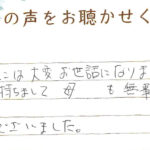 の声をお聴かせく
には大変お世話になりま
持ちまして 母 も無事
ございました。